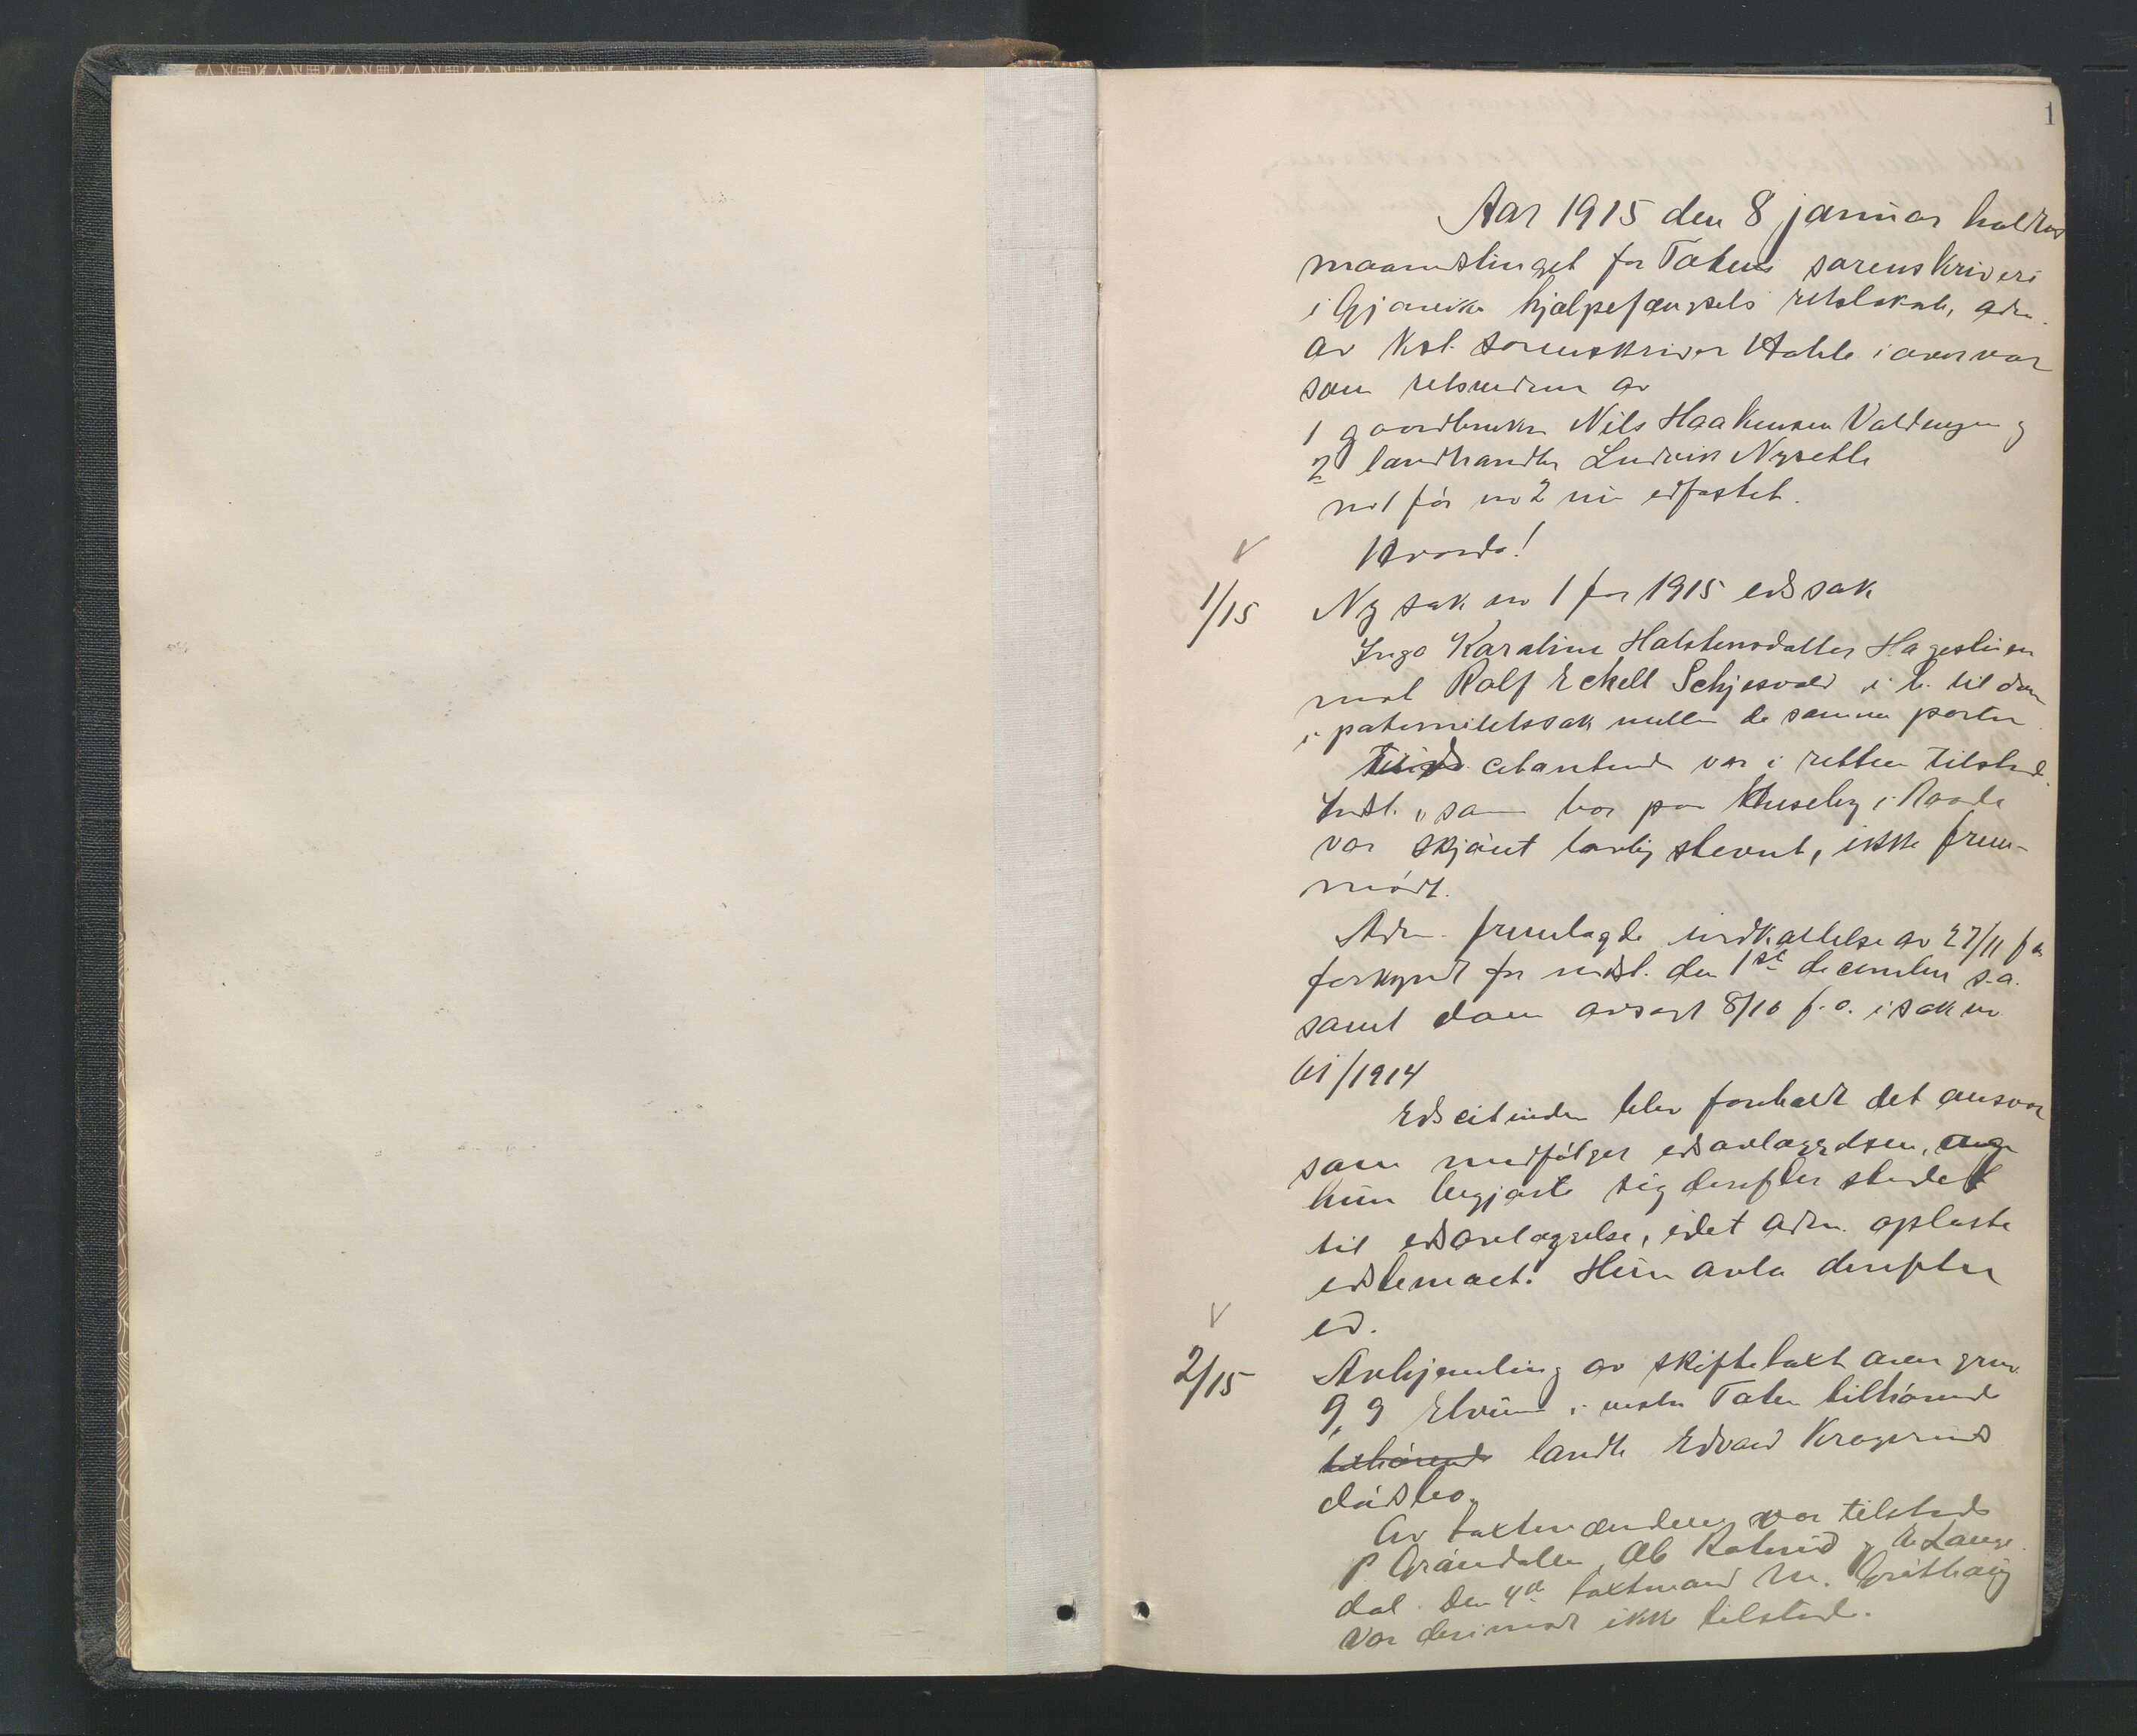 1
Aar 1915 den 8 januar holdtes
maanedstinget for Totens sorenskriveri
i Gjøviks hjælpefængsels retslokale, adm.
av kst. sorenskriver Hahle i overvær
som retsvidner av
1 gaardbruker Nils Haakensen Valdengen og
2 landhandler Ludvik Nysethe
no 1 før no 2 nu edfæstet.
Hvorda!
1/15 Ny sak no 1 for 1915 edssak
Inga Karoline Halstensdatter Hageslien
mot Rolf Eckell Schjesvold i h. til dom
i paternitetssak mellem de samme parter
citantinden var i retten tilstede.
Indst. som bor paa Huseby i Raade
var skjønt lovlig stevnt, ikke frem-
mødt.
Adm. fremlagde indkaldelse av 27/11 f a
forkyndt for indst. den 1ste december s.a.
samt dom avsagt 8/10 f.a. i sak no
61/1914
Edscitinden blev foreholdt det ansvar
som medfølger edsavlæggelsen, og
hun begjærte sig derefter stedet
til edsavlæggelse, idet adm. oplæste
edstemaet. Hun avla derefter
ed.
2/15 Avhjemling av skiftetakst over grno
9,9 Elvin i vestre Toten tilhørende
tilhørende landh. Edvard Kragerud
dødsbo.
Av takstmændene var tilstede
P Grøndalen, Ole Kolrud og A Lange-
dal. Den 4de takstmand M. Grøthaug
var derimot ikke tilstede.